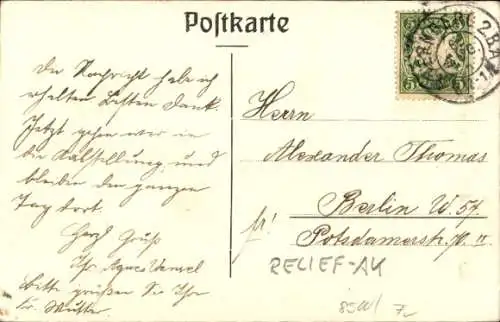 Postkarte
Die Nachricht habe ich
erhalten besten Dank.
Jetzt gehen wir in
die Ausstellung und
bleiben den ganzen
Tag dort.
Herzl Gruß
Ihr Agnes
bitte grüßen Sie Ihre
Fr. Mutter.
5 5
NÜRNBERG 2 B.A.
Herrn
Alexander Thomas
Berlin W. 57.
fr! Potsdamerstr. II
RELIEF-AK